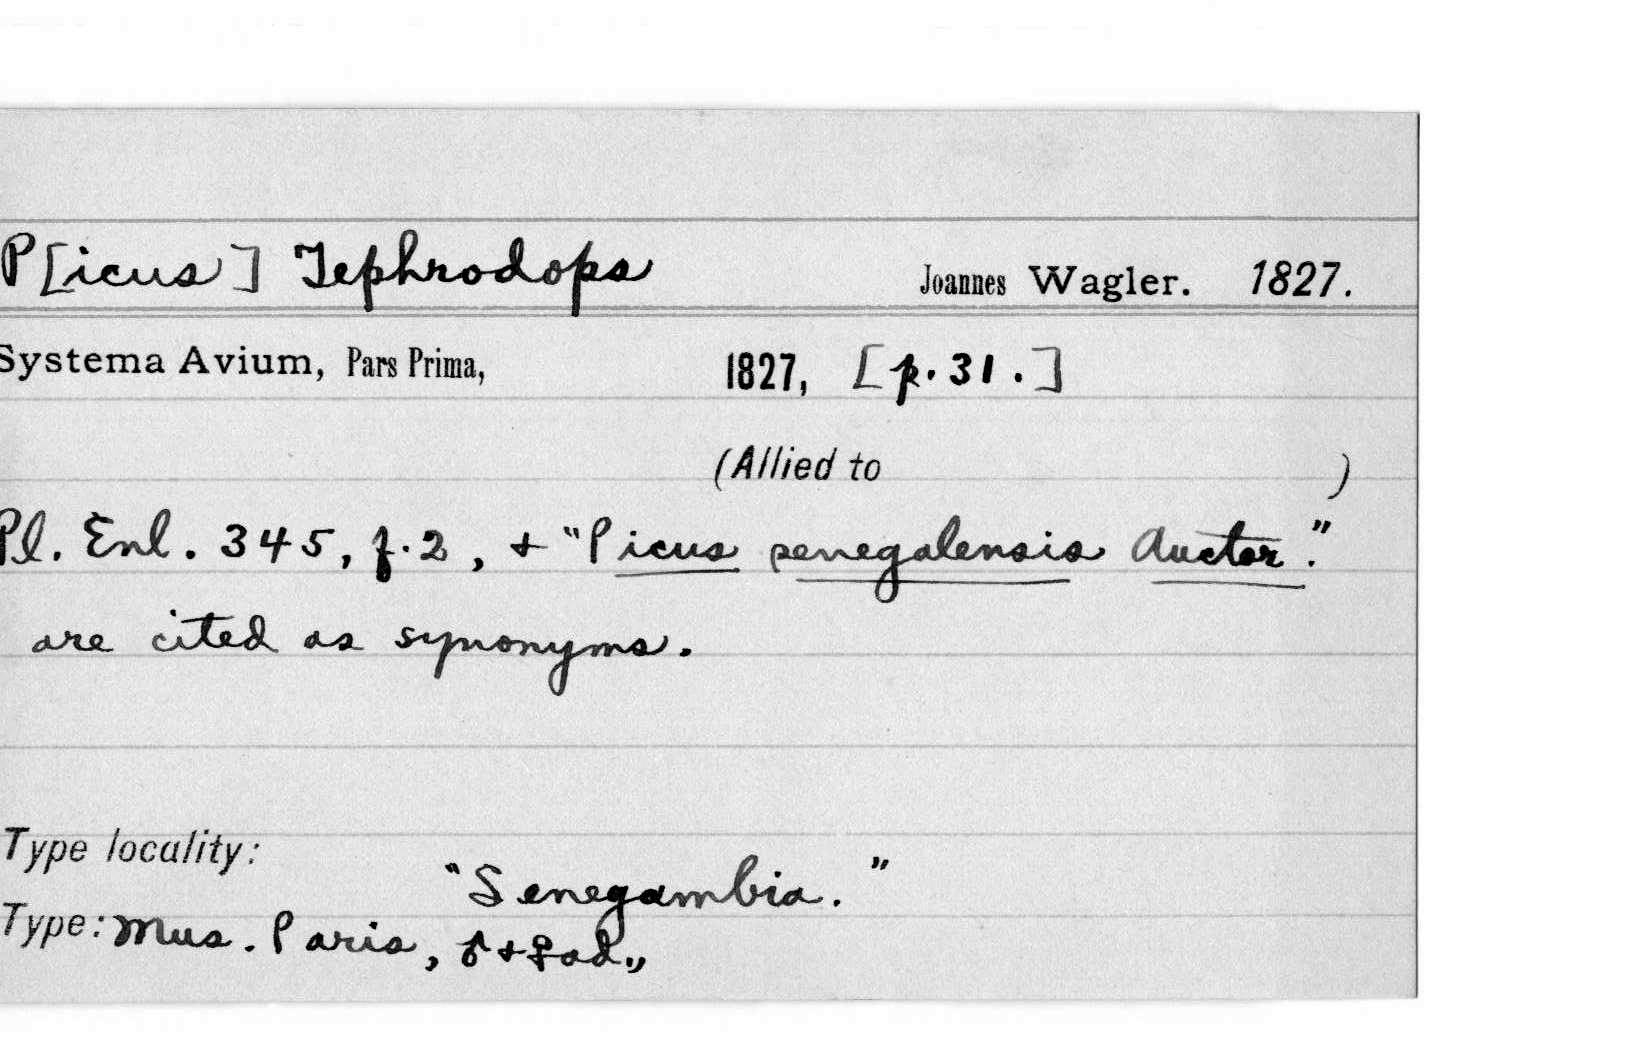 P[icus] Tephrodops Joannes Wagler. 1827.
Systema Avium, Pars Prima, 1827, [p. 31.]
(Allied to )
Pl. Enl. 345, f. 2, + "Picus senegalensis Auctor."
are cited as synonyms.
Type locality:
"Senegambia."
Type: Mus. Paris, ♂ + ♀ ad.,